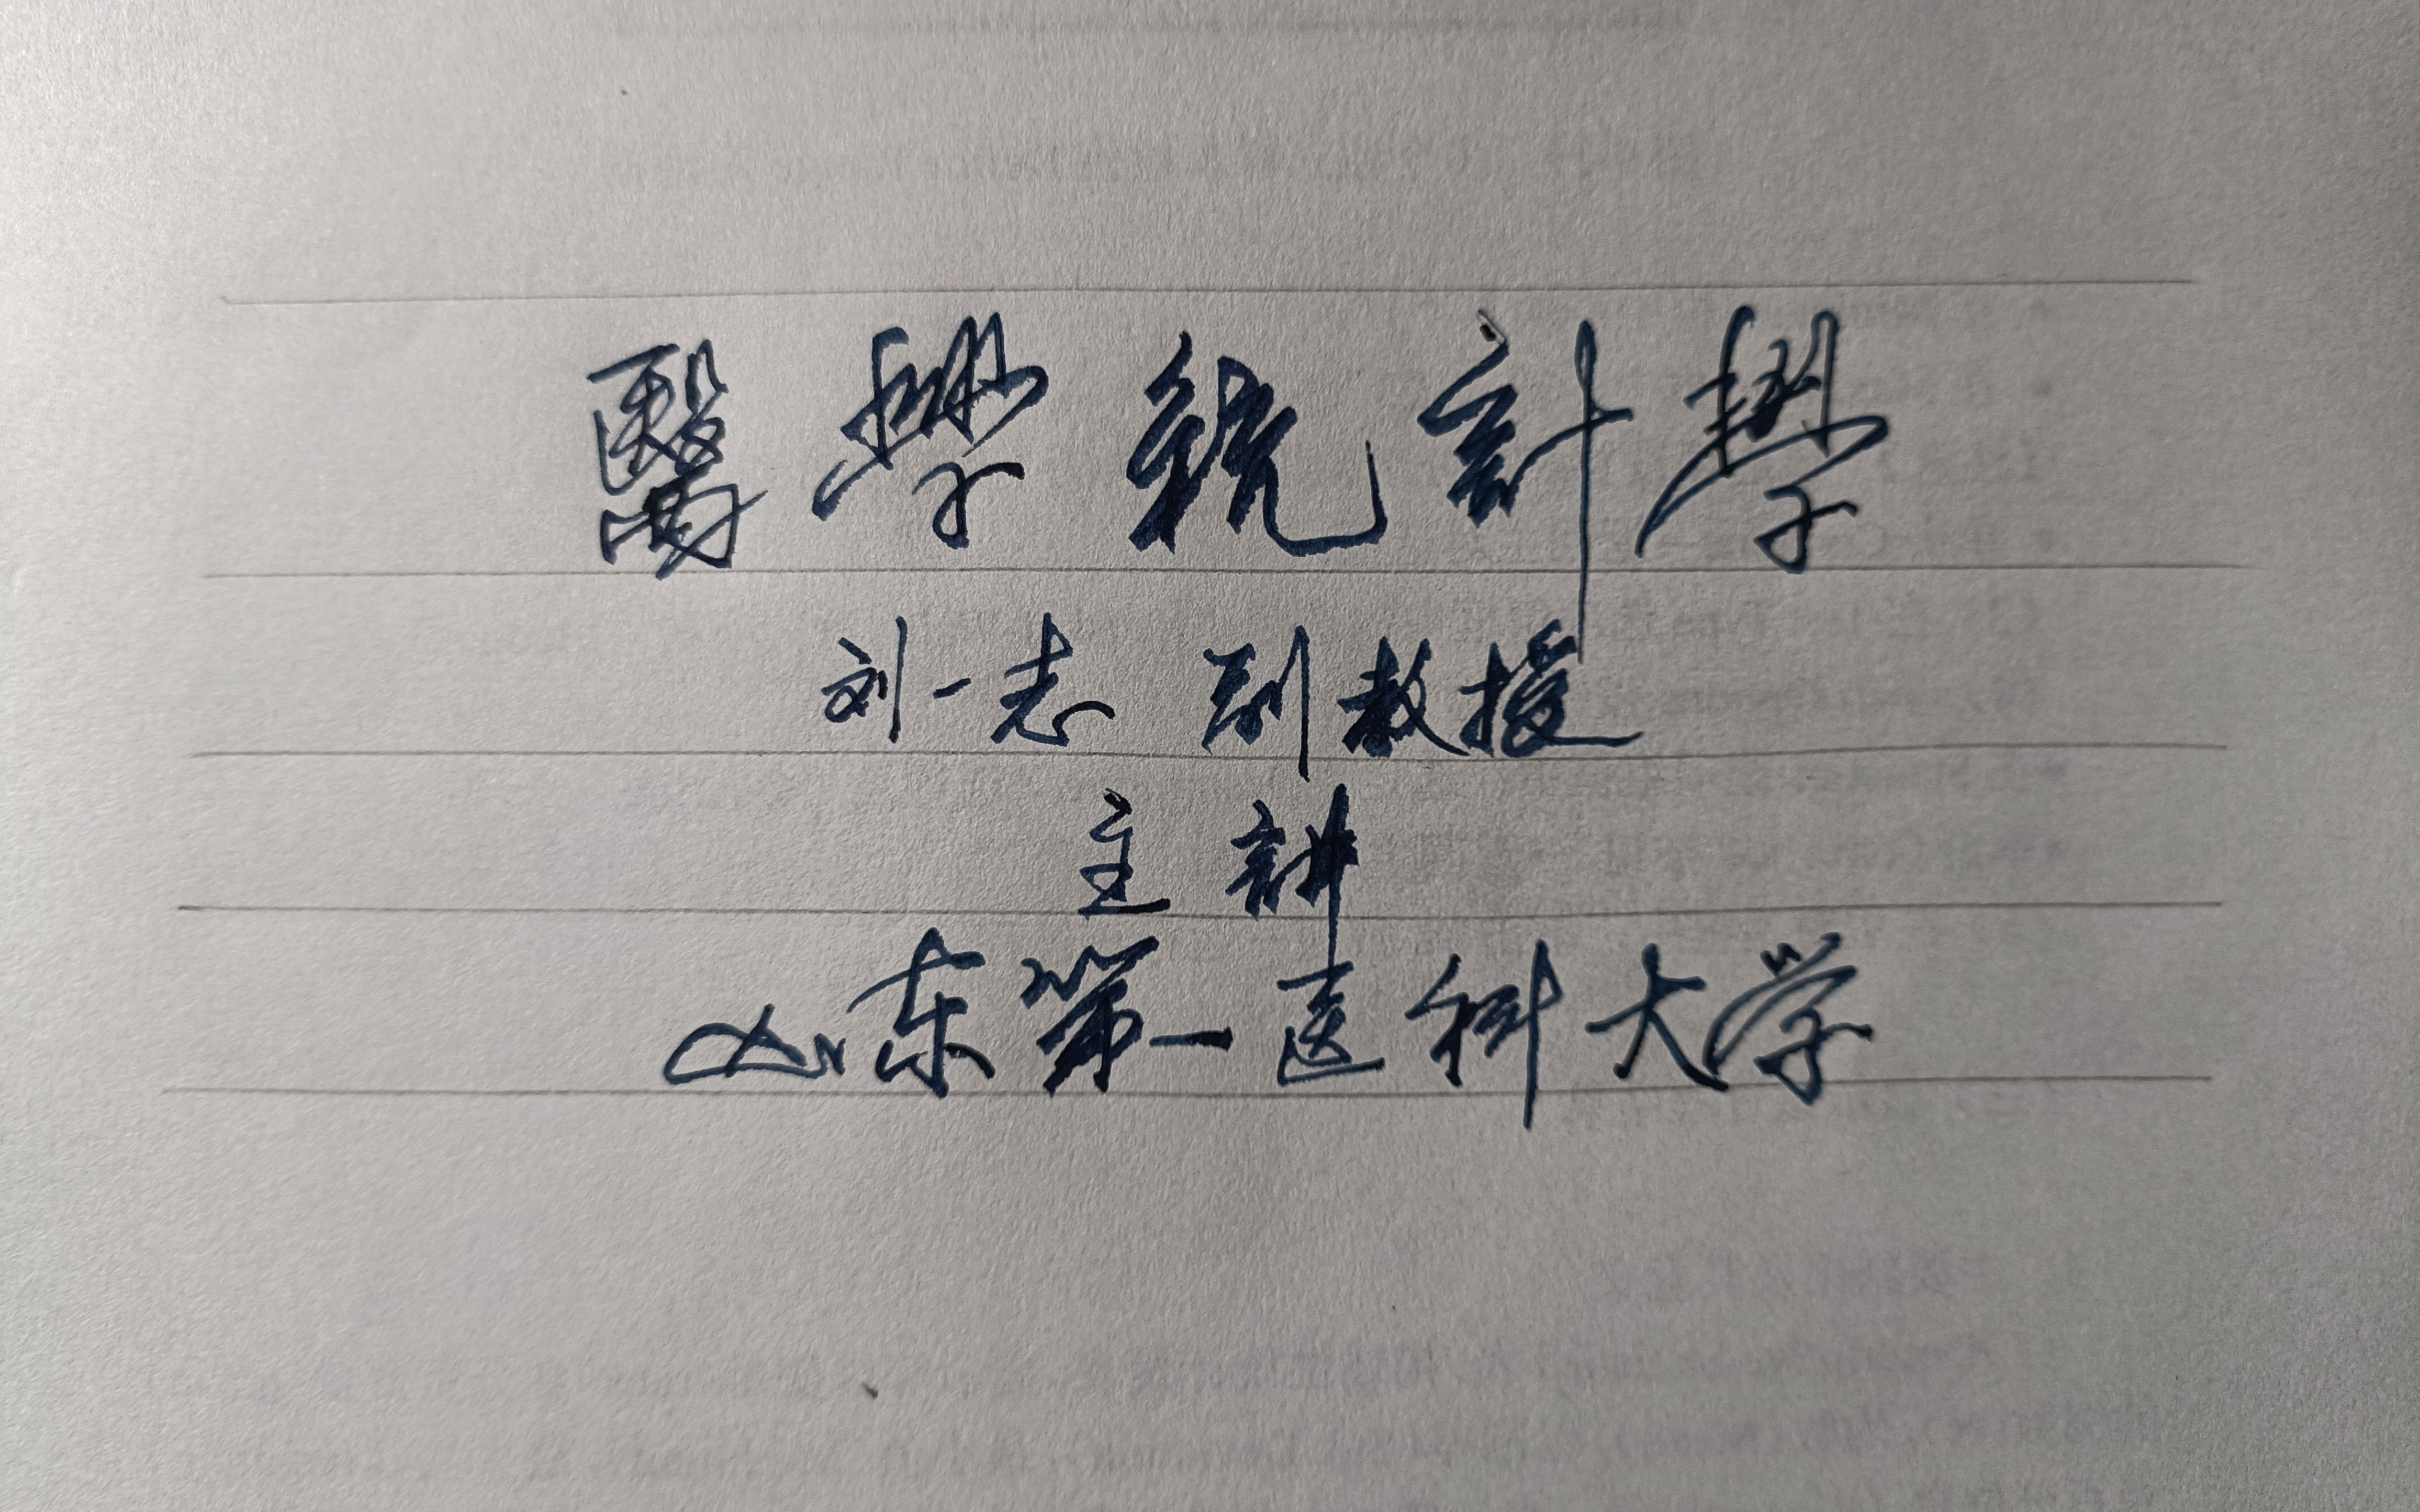 醫學統計學
刘一志 副教授
主講
山东第一医科大学